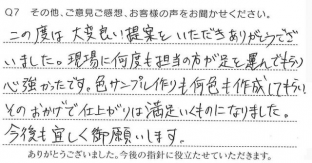 Q7 その他、ご意見ご感想、お客様の声をお聞かせください。
この度は大変良い提案をいただきありがとうござ
いました。現場に何度も担当の方が足を運んでもらい
心強かったです。色サンプル作りも何色も作成してもらい
そのおかげで仕上がりは満足いくものになりました。
今後も宜しく御願いします。
ありがとうございました。今後の指針に役立たせていただきます。